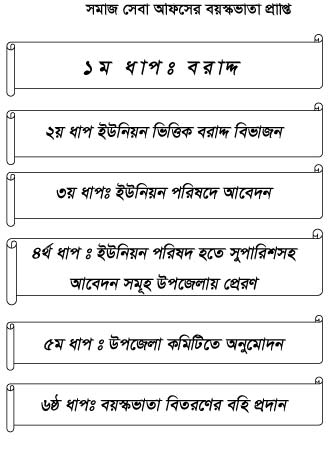 সমাজ সেবা আফসের বয়স্কভাতা প্রাপ্তি
১ম ধাপঃ বরাদ্দ
২য় ধাপ ইউনিয়ন ভিত্তিক বরাদ্দ বিভাজন
৩য় ধাপঃ ইউনিয়ন পরিষদে আবেদন
৪র্থ ধাপ ঃ ইউনিয়ন পরিষদ হতে সুপারিশসহ
আবেদন সমূহ উপজেলায় প্রেরণ
৫ম ধাপ ঃ উপজেলা কমিটিতে অনুমোদন
৬ষ্ঠ ধাপঃ বয়স্কভাতা বিতরণের বহি প্রদান